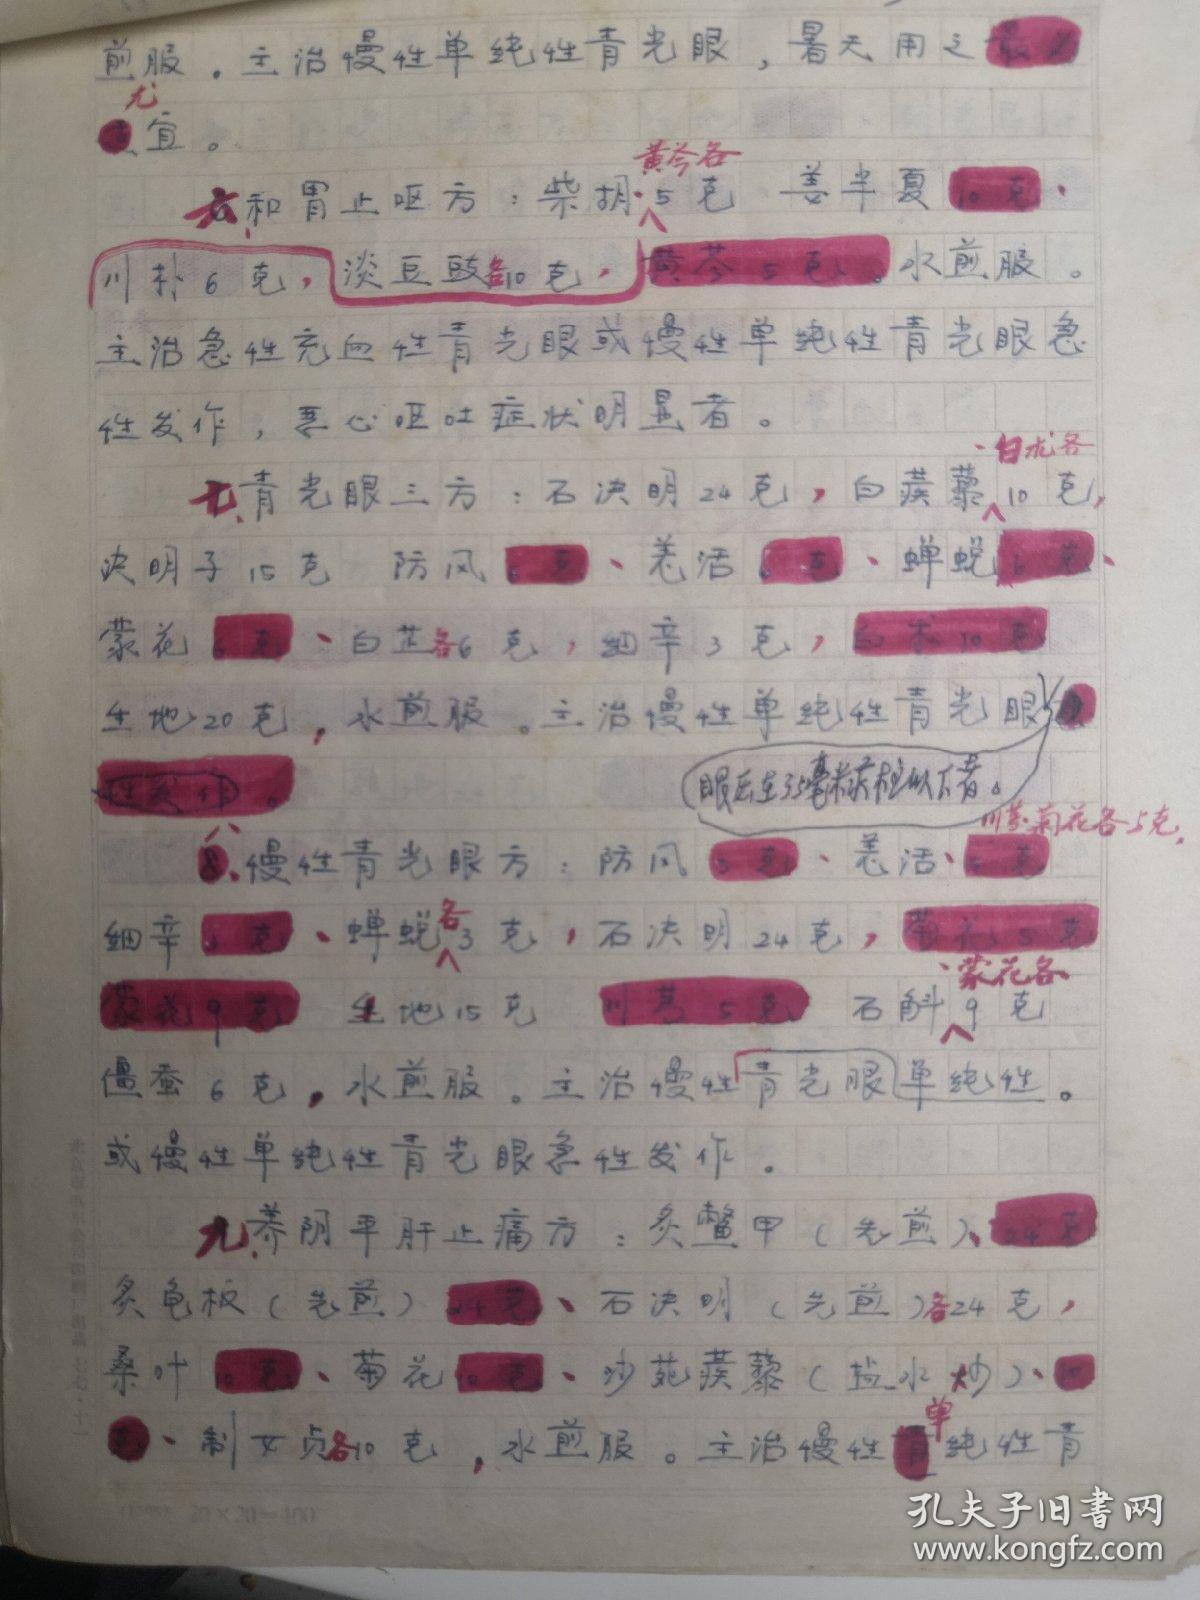 煎服。主治慢性单纯性青光眼，暑天用之
尤
宜。
黄芩各
六、和胃止呕方：柴胡、5克 姜半夏10克、
川朴6克，淡豆豉各10克，黄芩5克。水煎服。
主治急性充血性青光眼或慢性单纯性青光眼急
性发作，恶心呕吐症状明显者。
、白术各
七、青光眼三方：石决明24克，白蒺藜10克，
决明子15克 防风6克、羌活6克、蝉蜕6克、
蒙花6克、白芷各6克，细辛3克，白术10克
生地20克，水煎服。主治慢性单纯性青光眼
性发作。
眼压在35毫米汞柱以下者。
川芎、菊花各5克，
八、慢性青光眼方：防风3克、羌活、3克
细辛3克、蝉蜕各3克，石决明24克，菊花5克
、蒙花各
蒙花9克 生地15克 川芎5克 石斛9克
僵蚕6克，水煎服。主治慢性青光眼单纯性。
或慢性单纯性青光眼急性发作。
九、养阴平肝止痛方：炙鳖甲（先煎）、24克
炙龟板（先煎）24克、石决明（先煎）各24克，
桑叶10克、菊花10克、沙苑蒺藜（盐水炒）、
单
克、制女贞各10克，水煎服。主治慢性青纯性青
20×20=400
孔夫子旧书网
www.kongfz.com